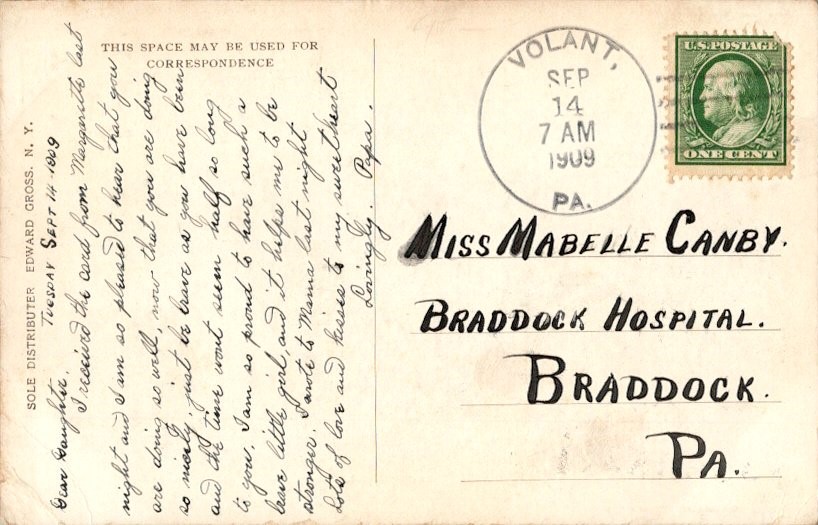 THIS SPACE MAY BE USED FOR
CORRESPONDENCE
SOLE DISTRIBUTER EDWARD GROSS. N. Y.
TUESDAY SEPT 14-1909
Dear Daughter.
I received the card from Margarette last
night and I am so pleased to hear that you
are doing so well, now that you are doing
so nicely. just be brave as you have been
and the time wont seem half so long
to you. I am so proud to have such a
brave little girl, and it helps me to be
stronger. I wrote to Mama last night
Lots of love and kisses to my sweetheart
Lovingly. Papa.
VOLANT,
SEP
14
7 AM
1909
PA.
U.S. POSTAGE
ONE CENT
MISS MABELLE CANBY.
BRADDOCK HOSPITAL.
BRADDOCK.
PA.